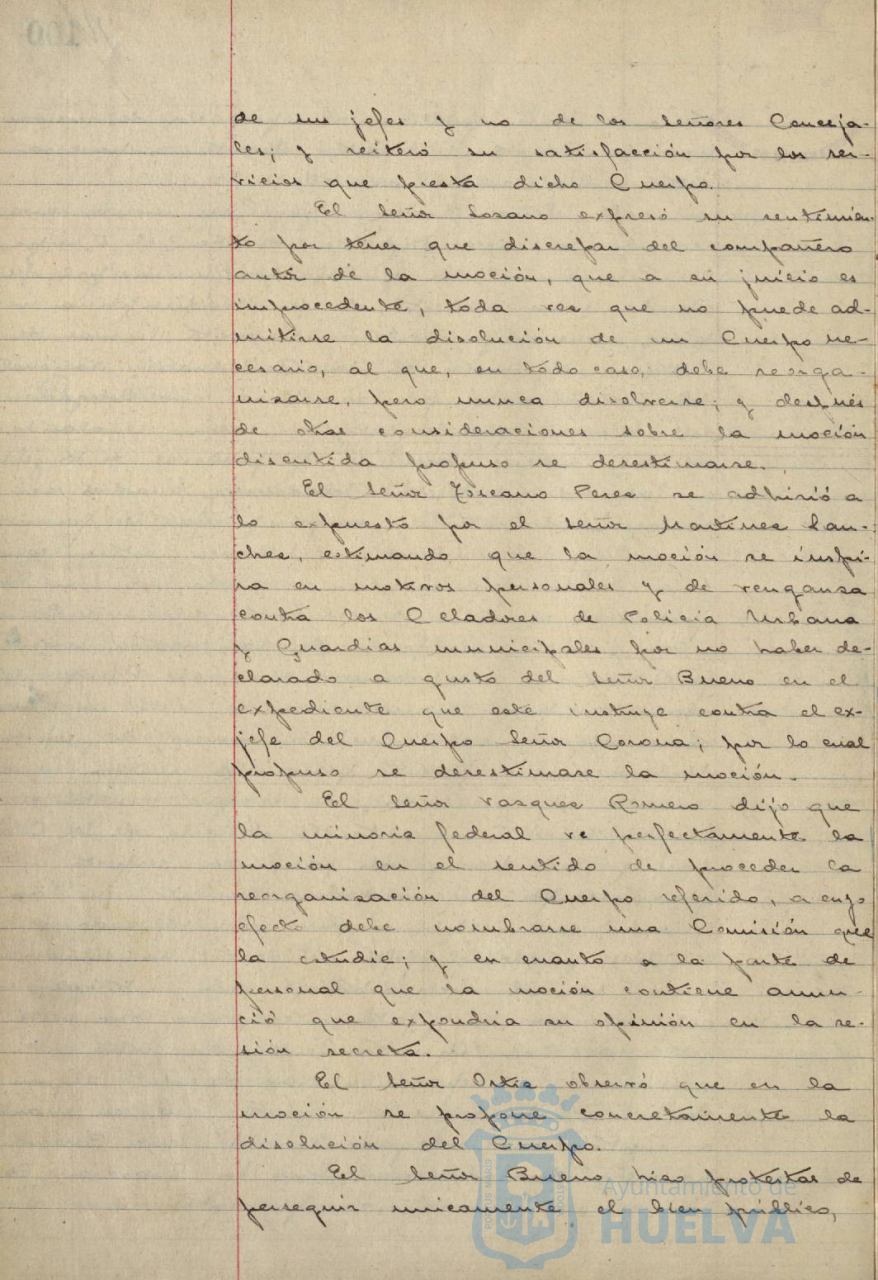 de sus jefes y no de los señores Conceja-
les; y reiteró su satisfacción por los ser-
vicios que presta dicho Cuerpo.
El Señor Lozano expresó su sentimien-
to por tener que discrepar del compañero
autor de la moción, que a su juicio es
improcedente, toda vez que no puede ad-
mitirse la disolución de un Cuerpo ne-
cesario, al que, en todo caso, debe reorga-
nizarse, pero nunca disolverse; y después
de otras consideraciones sobre la moción
discutida propuso se desestimarse.
El Señor Toscano Perez se adhirió a
lo expuesto por el Señor Martinez San-
chez, estimando que la moción se inspi-
ra en motivos personales y de venganza
contra los Celadores de Policia Urbana
y Guardias municipales por no haber de-
clarado a gusto del Señor Bueno en el
expediente que este instruye contra el ex-
jefe del Cuerpo Señor Corona; por lo cual
propuso se desestimase la moción.
El Señor Vazquez Romero dijo que
la minoria federal ve perfectamente la
moción en el sentido de proceder la
reorganización del Cuerpo referido, a cuyo
efecto debe nombrarse una Comisión que
la estudie; y en cuanto a la parte de
personal que la moción contiene anun-
ció que expondria su opinión en la se-
sión secreta.
El Señor Ortiz observó que en la
moción se propone concretamente la
disolución del Cuerpo.
El Señor Bueno hizo protestas de
perseguir unicamente el bien público,
Ayuntamiento de
HUELVA